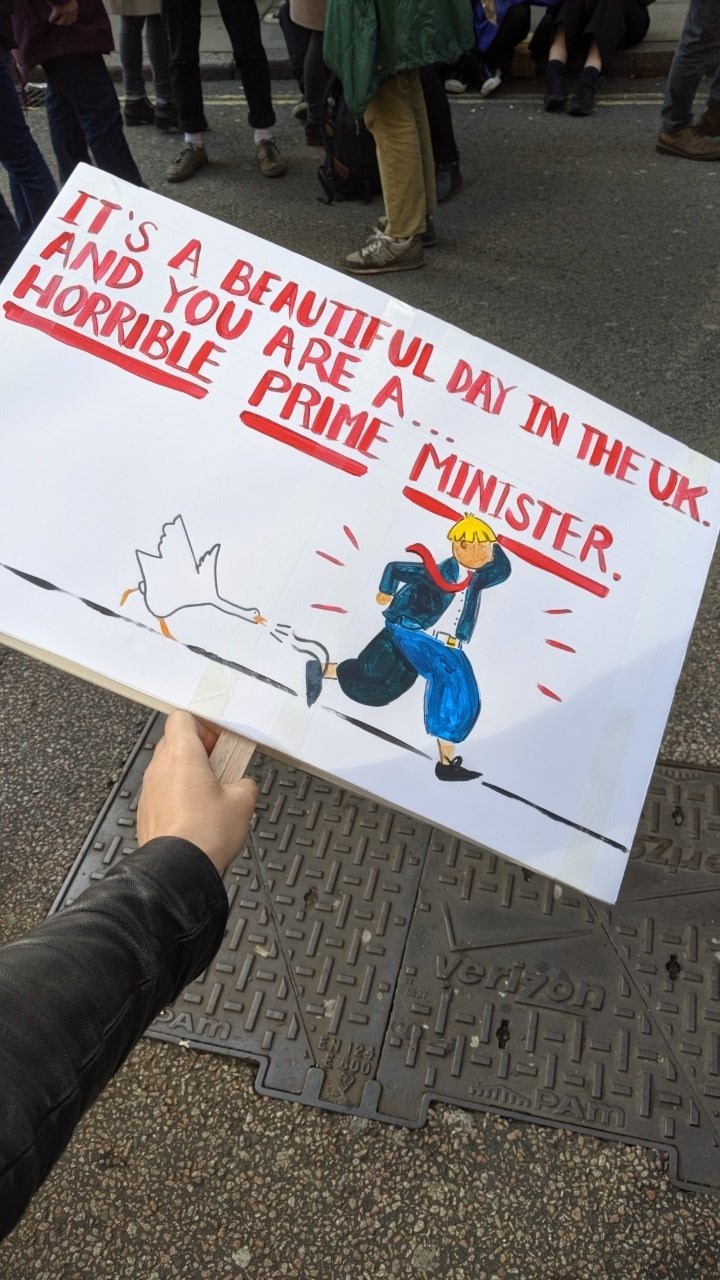 IT'S A BEAUTIFUL DAY IN THE U.K.
AND YOU ARE A...
HORRIBLE PRIME MINISTER.
verizon
PAm
EN 124
PAm